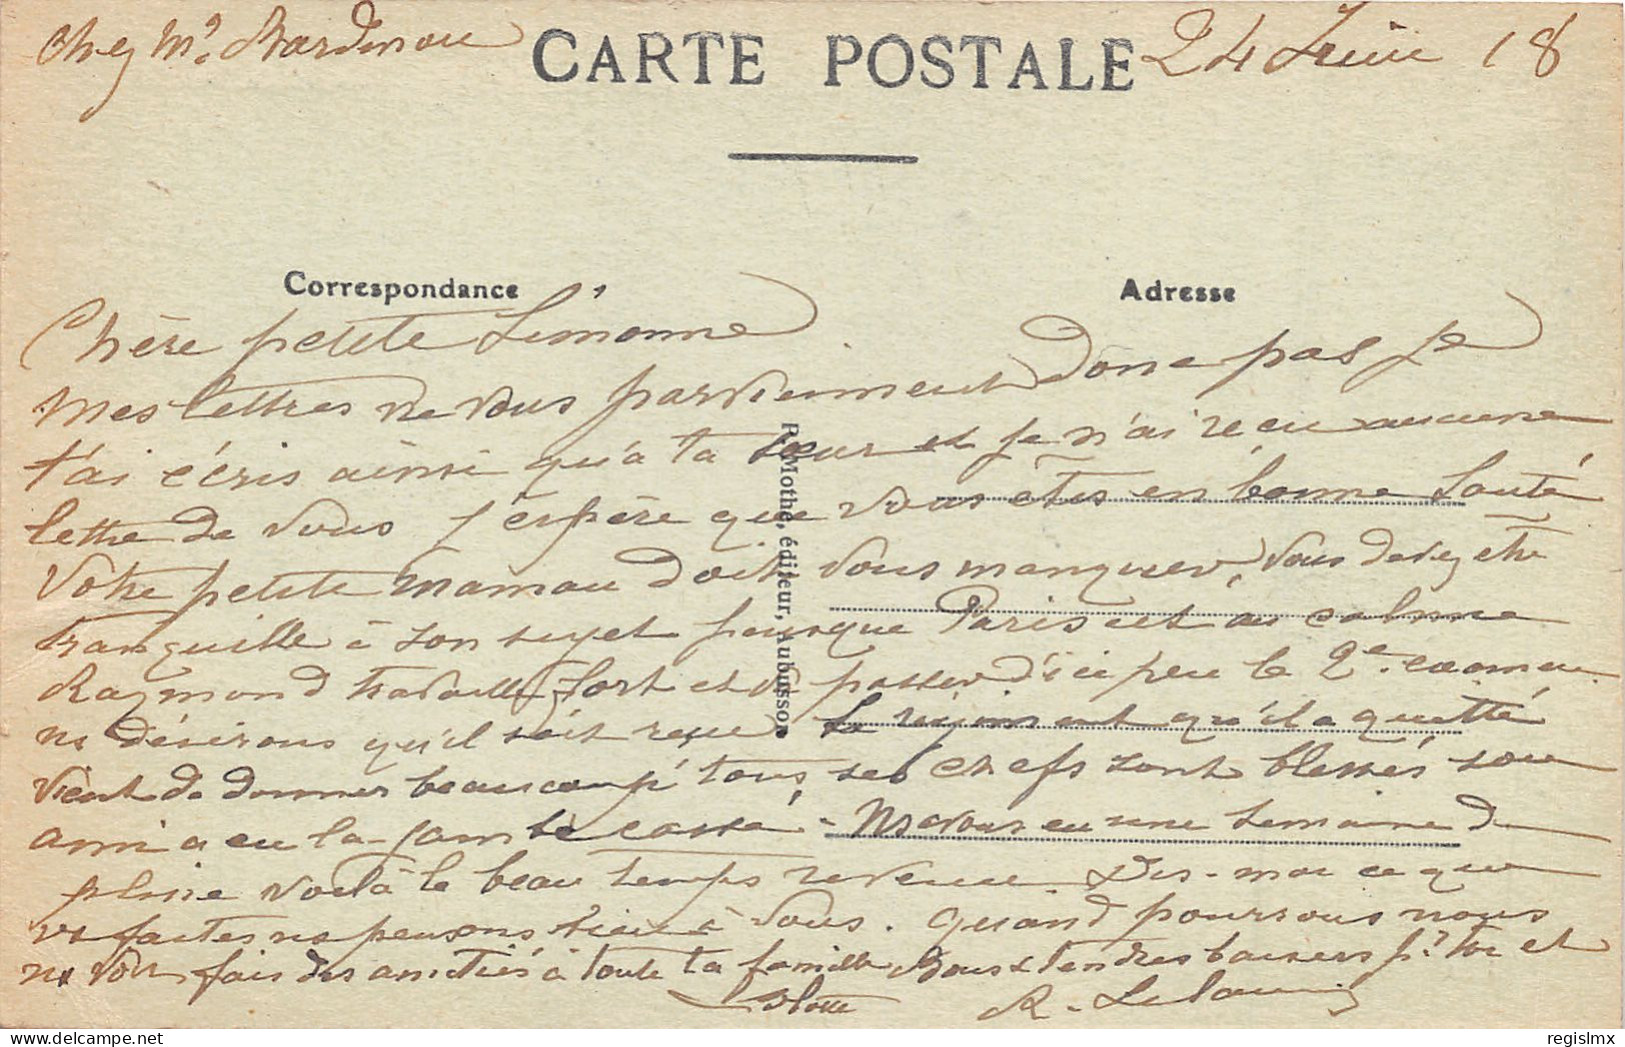 Chez Mr Chardenou
CARTE POSTALE
24 Juin 18
Correspondance
Adresse
Chère petite Simonne
Mes lettres ne vous parviennent donc pas je
t'ai écris ainsi qu'à ta sœur et je n'ai reçu aucune
lettre de vous j'éspère que vous êtes en bonne Santé
Votre petite maman doit vous manquer, vous devez être
tranquille à son sujet puisque Paris est au calme
Raymond travaille fort et va passer d'ici peu le 2e examen
ns désirons qu'il soit reçu. Le régiment qu'il a quitté
vient de donner beaucoup tous ses chefs sont blessés son
ami a eu la jambe cassé. Ns avons eu une semaine de
pluie voilà le beau temps revenu. Dis-moi ce que
vs faites ns pensons bien à vous. Quand pourrons nous
ns voir fais des amitiés à toute ta famille Bons & tendres baisers pr toi et
R.
P. Mothe, éditeur, Aubusson
regislmx